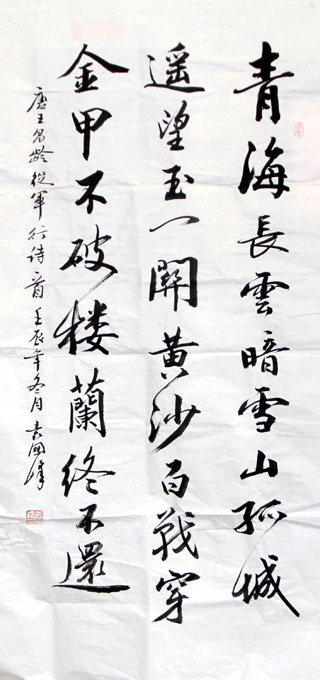 青海長雲暗雪山孤城
遥望玉门關黄沙百戰穿
金甲不破楼蘭終不還
唐王昌龄從軍行诗一首壬辰年冬月